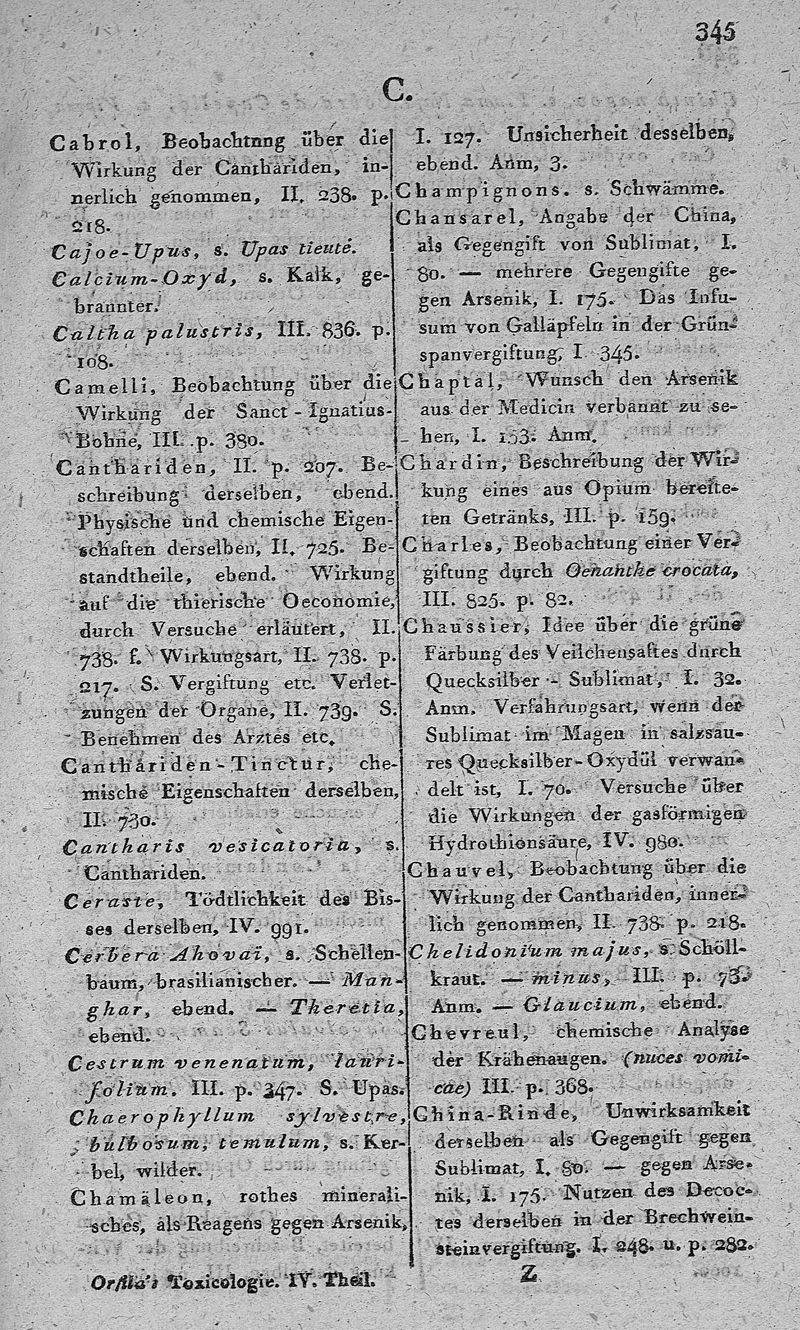 345
C.
Cabrol, Beobachtnng über die
Wirkung der Canthariden, in-
nerlich genommen, II. 238. p.
218.
Cajoe-Upus, s. Upas tieuté.
Calcium-Oxyd, s. Kalk, ge-
brannter.
Caltha palustris, III. 836. p.
108.
Camelli, Beobachtung über die
Wirkung der Sanct-Ignatius-
Bohne, III. p. 380.
Canthariden, II. p. 207. Be-
schreibung derselben, ebend.
Physische und chemische Eigen-
schaften derselben, II. 725. Be-
standtheile, ebend. Wirkung
auf die thierische Oeconomie,
durch Versuche erläutert, II.
738. f. Wirkungsart, II. 738. p.
217. S. Vergiftung etc. Verlet-
zungen der Organe, II. 739. S.
Benehmen des Arztes etc.
Canthariden-Tinctur, che-
mische Eigenschaften derselben,
II. 730.
Cantharis vesicatoria, s.
Canthariden.
Ceraste, Tödtlichkeit des Bis-
ses derselben, IV. 991.
Cerbera Ahovai, s. Schellen-
baum, brasilianischer. — Man-
ghar, ebend. — Theretia,
ebend.
Cestrum venenatum, lauri-
folium. III. p. 347. S. Upas.
Chaerophyllum sylvestre,
bulbosum, temulum, s. Ker-
bel, wilder.
Chamäleon, rothes minerali-
sches, als Reagens gegen Arsenik,
I. 127. Unsicherheit desselben,
ebend. Anm, 3.
Champignons. s. Schwämme.
Chansarel, Angabe der China,
als Gegengift von Sublimat, I.
80. — mehrere Gegengifte ge-
gen Arsenik, I. 175. Das Infu-
sum von Galläpfeln in der Grün-
spanvergiftung, I. 345.
Chaptal, Wunsch den Arsenik
aus der Medicin verbannt zu se-
hen, I. 153. Anm.
Chardin, Beschreibung der Wir-
kung eines aus Opium bereite-
ten Getränks, III. p. 159.
Charles, Beobachtung einer Ver-
giftung durch Oenanthe crocata,
III. 825. p. 82.
Chaussier, Idee über die grüne
Färbung des Veilchensaftes durch
Quecksilber-Sublimat, I. 32.
Anm. Verfahrungsart, wenn der
Sublimat im Magen in salzsau-
res Quecksilber-Oxydül verwan-
delt ist, I. 70. Versuche über
die Wirkungen der gasförmigen
Hydrothionsäure, IV. 980.
Chauvel, Beobachtung über die
Wirkung der Canthariden, inner-
lich genommen, II. 738. p. 218.
Chelidonium majus, s. Schöll-
kraut. — minus, III. p. 73.
Anm. — Glaucium, ebend.
Chevreul, chemische Analyse
der Krähenaugen. (nuces vomi-
cae) III. p. 368.
China-Rinde, Unwirksamkeit
derselben als Gegengift gegen
Sublimat, I. 80. — gegen Arse-
nik, I. 175. Nutzen des Decoc-
tes derselben in der Brechwein-
steinvergiftung. I. 248. u. p. 282.
Orfila's Toxicologie. IV. Theil.
Z